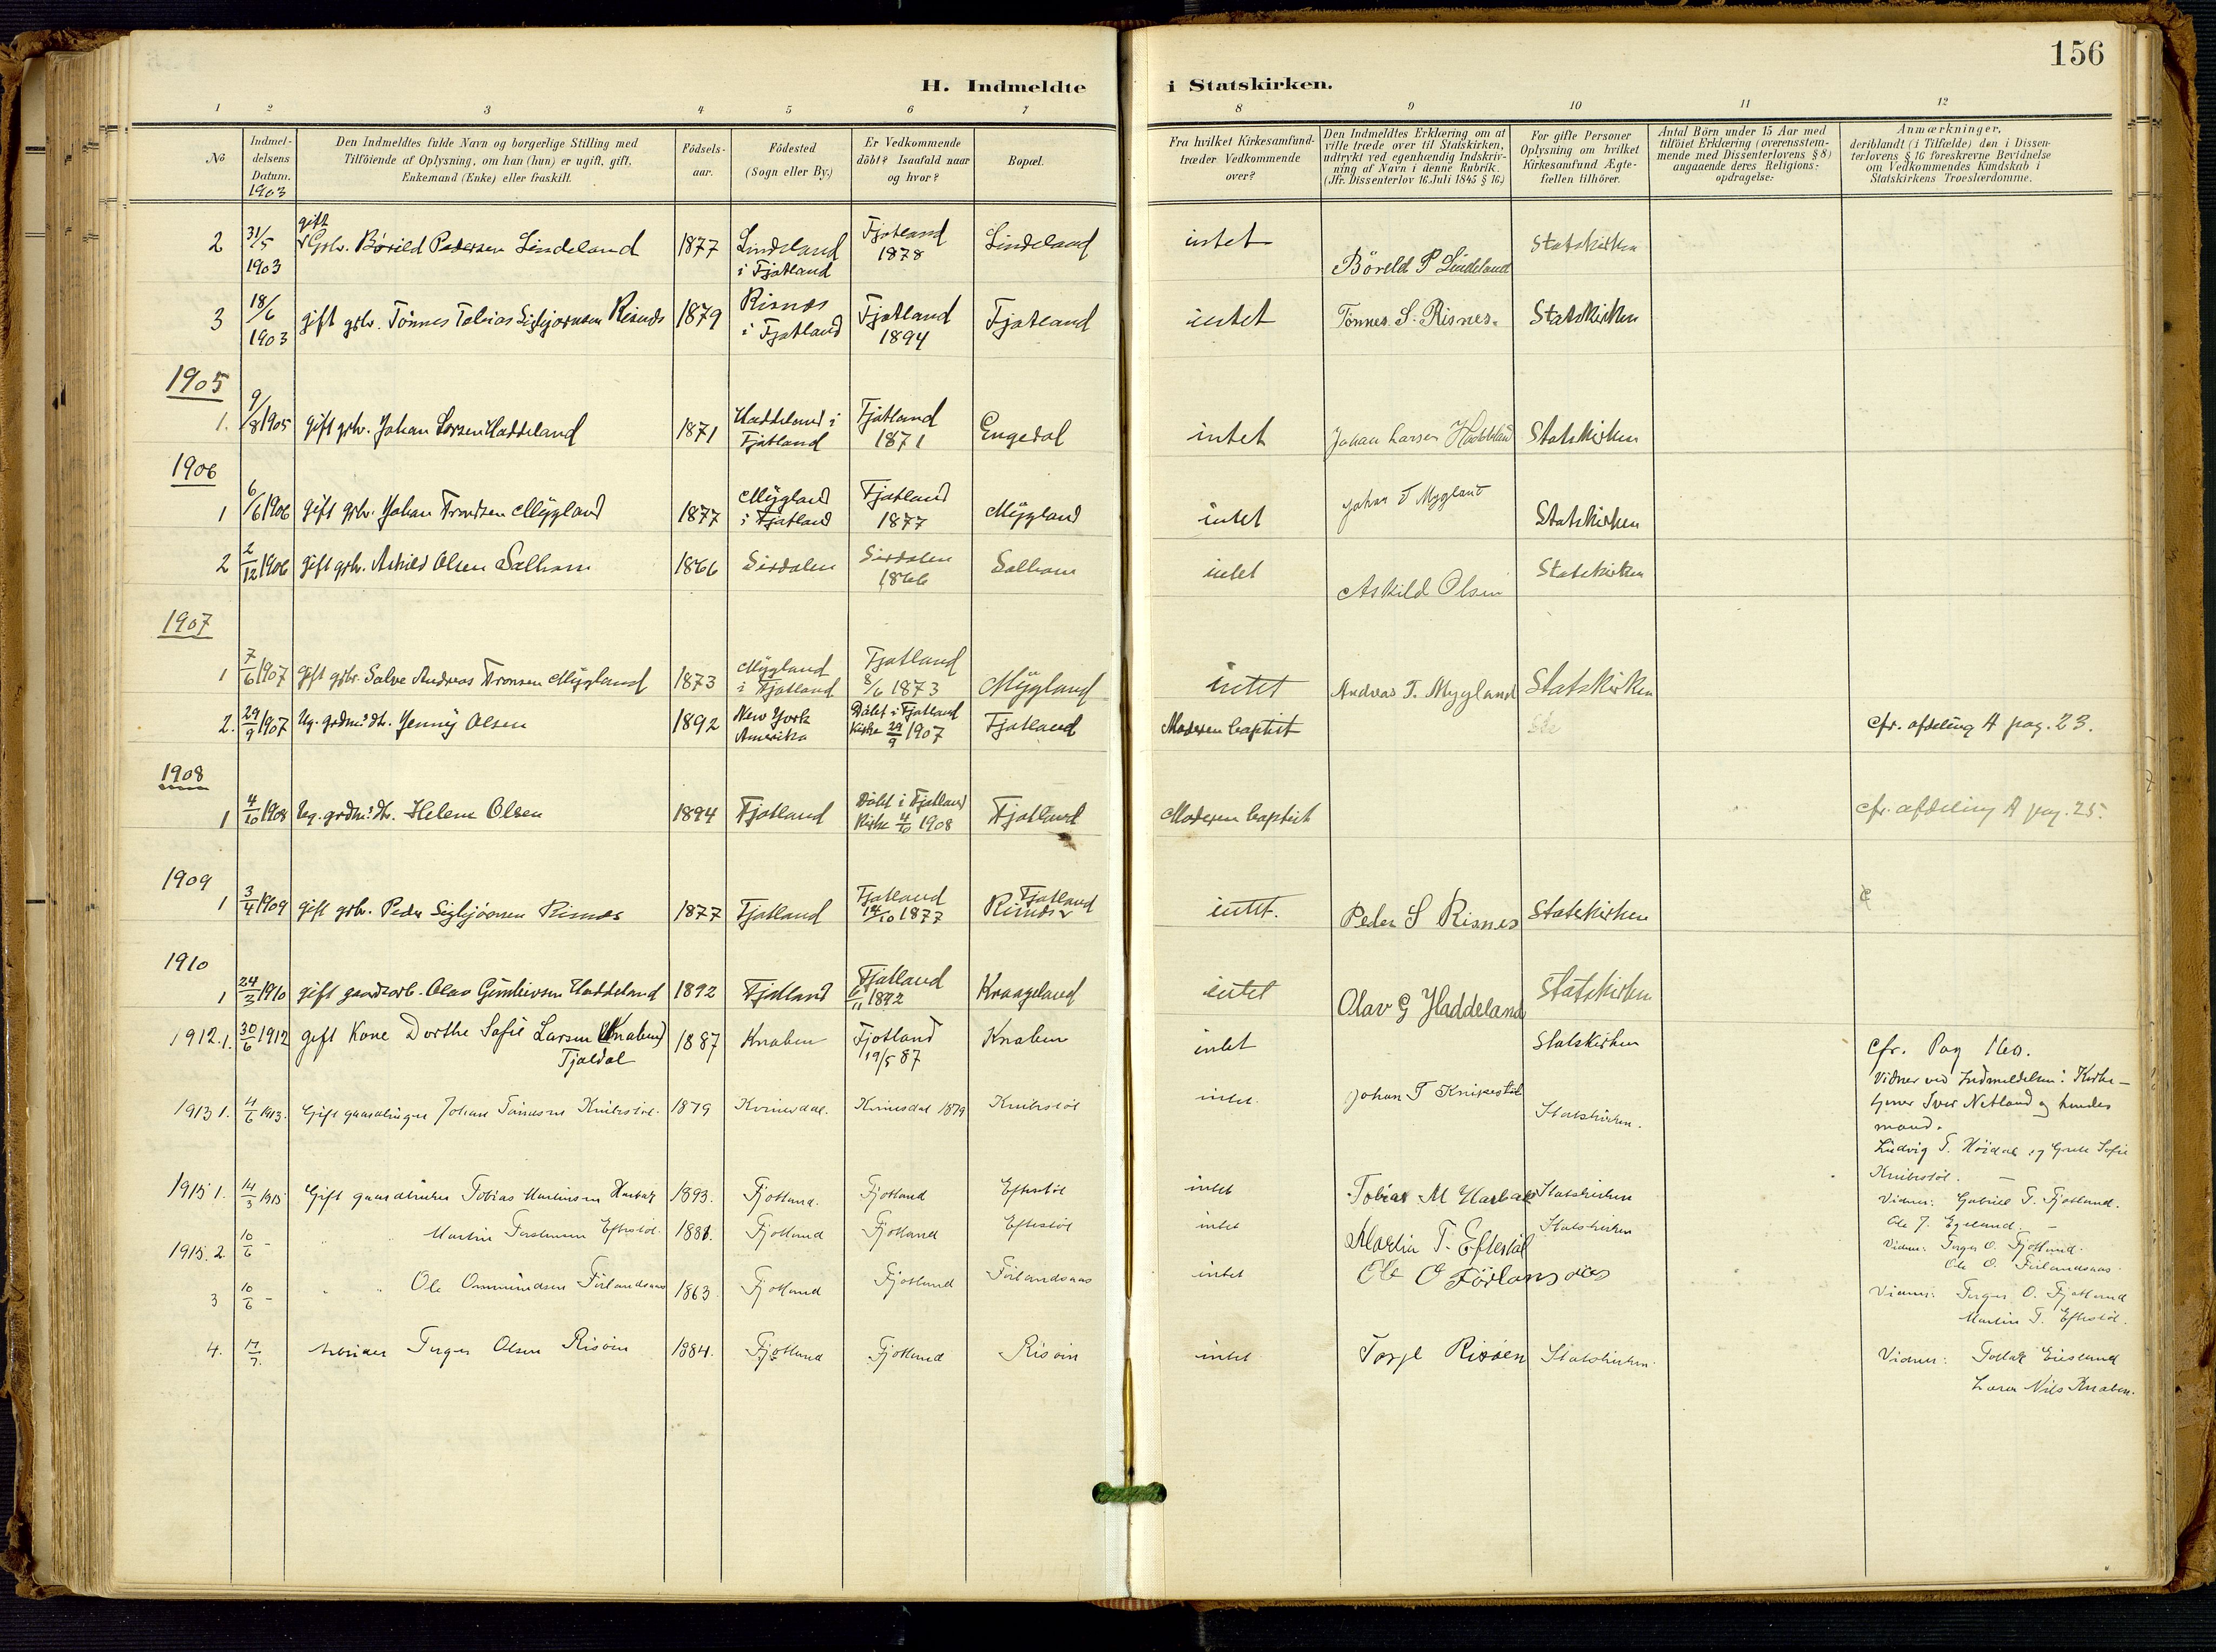 156
H. Indmeldte i Statskirken.
1 2 3 4 5 6 7 8 9 10 11 12
No
Indmel-
delsens
Datum.
1903
Den Indmeldtes fulde Navn og borgerlige Stilling med
Tilföiende af Oplysning, om han (hun) er ugift, gift,
Enkemand (Enke) eller fraskilt.
Födsels-
aar.
Födested
(Sogn eller By.)
Er Vedkommende
döbt? Isaafald naar
og hvor?
Bopæl.
Fra hvilket Kirkesamfund
træder Vedkommende
over?
Den Indmeldtes Erklæring om at
ville træde over til Statskirken,
udtrykt ved egenhændig Indskriv-
ning af Navn i denne Rubrik.
(Jfr. Dissenterlov 16. Juli 1845 § 16.)
For gifte Personer
Oplysning om hvilket
Kirkesamfund Ægte-
fællen tilhörer.
Antal Börn under 15 Aar med
tilföiet Erklæring (overensstem-
mende med Dissenterlovens § 8)
angaaende deres Religions-
opdragelse.
Anmærkninger,
deriblandt (i Tilfælde) den i Dissen-
terlovens § 16 foreskrevne Bevidnelse
om Vedkommendes Kundskab i
Statskirkens Troeslærdomme.
2 31/5 1903 gift Grbr. Börild Pedersen Lindeland 1877 Lindeland i Fjotland Fjotland 1878 Lindeland intet Böreld P Lindeland Statskirken
3 18/6 1903 gift grbr. Tönnes Tobias Sigbjörnsen Risnes 1879 Risnes i Fjotland Fjotland 1894 Fjotland intet Tönnes. S. Risnes. Statskirken
1905
1. 9/8 1905 gift grbr. Johan Larsen Haddeland 1871 Haddeland i Fjotland Fjotland 1871 Engedal intet Johan Larsen Haddeland Statskirken
1906
1 6/6 1906 gift grbr. Johan Trondsen Mygland 1877 Mygland i Fjotland Fjotland 1877 Mygland intet Johan T Mygland Statskirken
2 2/12 1906 gift grbr. Askild Olsen Solhom 1866 Sirdalen Sirdalen 1866 Solhom intet Askild Olsen Statskirken
1907
1 7/6 1907 gift grbr. Salve Andreas Tronsen Mygland 1873 Mygland i Fjotland Fjotland 8/6 1873 Mygland intet Andreas T. Mygland Statskirken
2. 29/9 1907 Ug. grdm: dt. Jenny Olsen 1892 New York Amerika Döbt i Fjotland Kirke 29/9 1907 Fjotland Moderen baptist cfr. afdeling A pag. 23.
1908
1 4/10 1908 Ug. grdm: dt. Helene Olsen 1894 Fjotland Döbt i Fjotland Kirke 4/10 1908 Fjotland Moderen baptist cfr. afdeling A pag. 25.
1909
1 3/4 1909 gift grbr. Peder Sigbjörnsen Risnes 1877 Fjotland Fjotland 14/10 1877 Risnes Fjotland intet. Peder S Risnes Statskirken
1910
1 24/3 1910 gift gaardarb. Olav Haddeland 1892 Fjotland Fjotland 6/11 1892 Kraageland intet Olav G Haddeland Statskirken
1912. 1. 30/6 1912 gift Kone Dorthe Sofie Larsen (Knaben) Tjaldal 1887 Knaben Fjotland 19/5 87 Knaben intet Statskirken cfr. Pag 160.
Vidner ved Indmeldelsen: Kirke-
tjener Iver Netland og hendes
mand.
1913 1. 4/6 1913. Gift gaardbruger Johan Tönnesen Knibestöl. 1879 Kvinesdal. Kvinesdal 1879 Knibestöl intet. Johan T Knipestöl Statskirken.
Ludvig T. Höidal og Grete Sofie
Knibestöl.
1915 1. 14/3 1915 Gift gaardbruker Tobias Martinsen Harbak 1893. Fjotland. Fjotland Eftestöl intet Tobias M Harbak Statskirken
Vidner: Gabriel T. Fjotland.
Ole J. Egeland
1915. 2 10/6 - " " Martin Eftestöl. 1881. Fjotland Fjotland Eftestöl intet Martin T. Eftestöl Statskirken
Vidner: Torger O. Fjotland.
Ole O. Förlandsaas.
3 10/6 - " " Ole Ommundsen Förlandsaas 1863. Fjotland Fjotland Förlandsaas intet Ole O Förlansaas
Vidner: Torger O. Fjotland
Martin T. Eftestöl.
4. 17/7. Torger Olsen Risöin 1884. Fjotland Fjotland Risöin intet Torje Risöen Statskirken.
Vidner: Tollak
Nils Knaben.